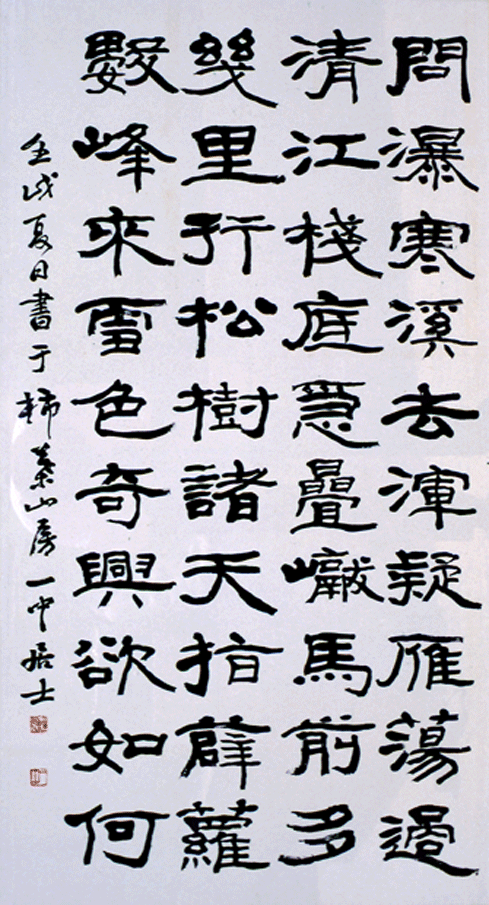 問瀑寒溪去渾疑雁蕩過
清江棧底急疊巘馬前多
幾里行松樹諸天指薜蘿
數峰來雪色奇興欲如何
壬戌夏日書于柿葉山房一中居士